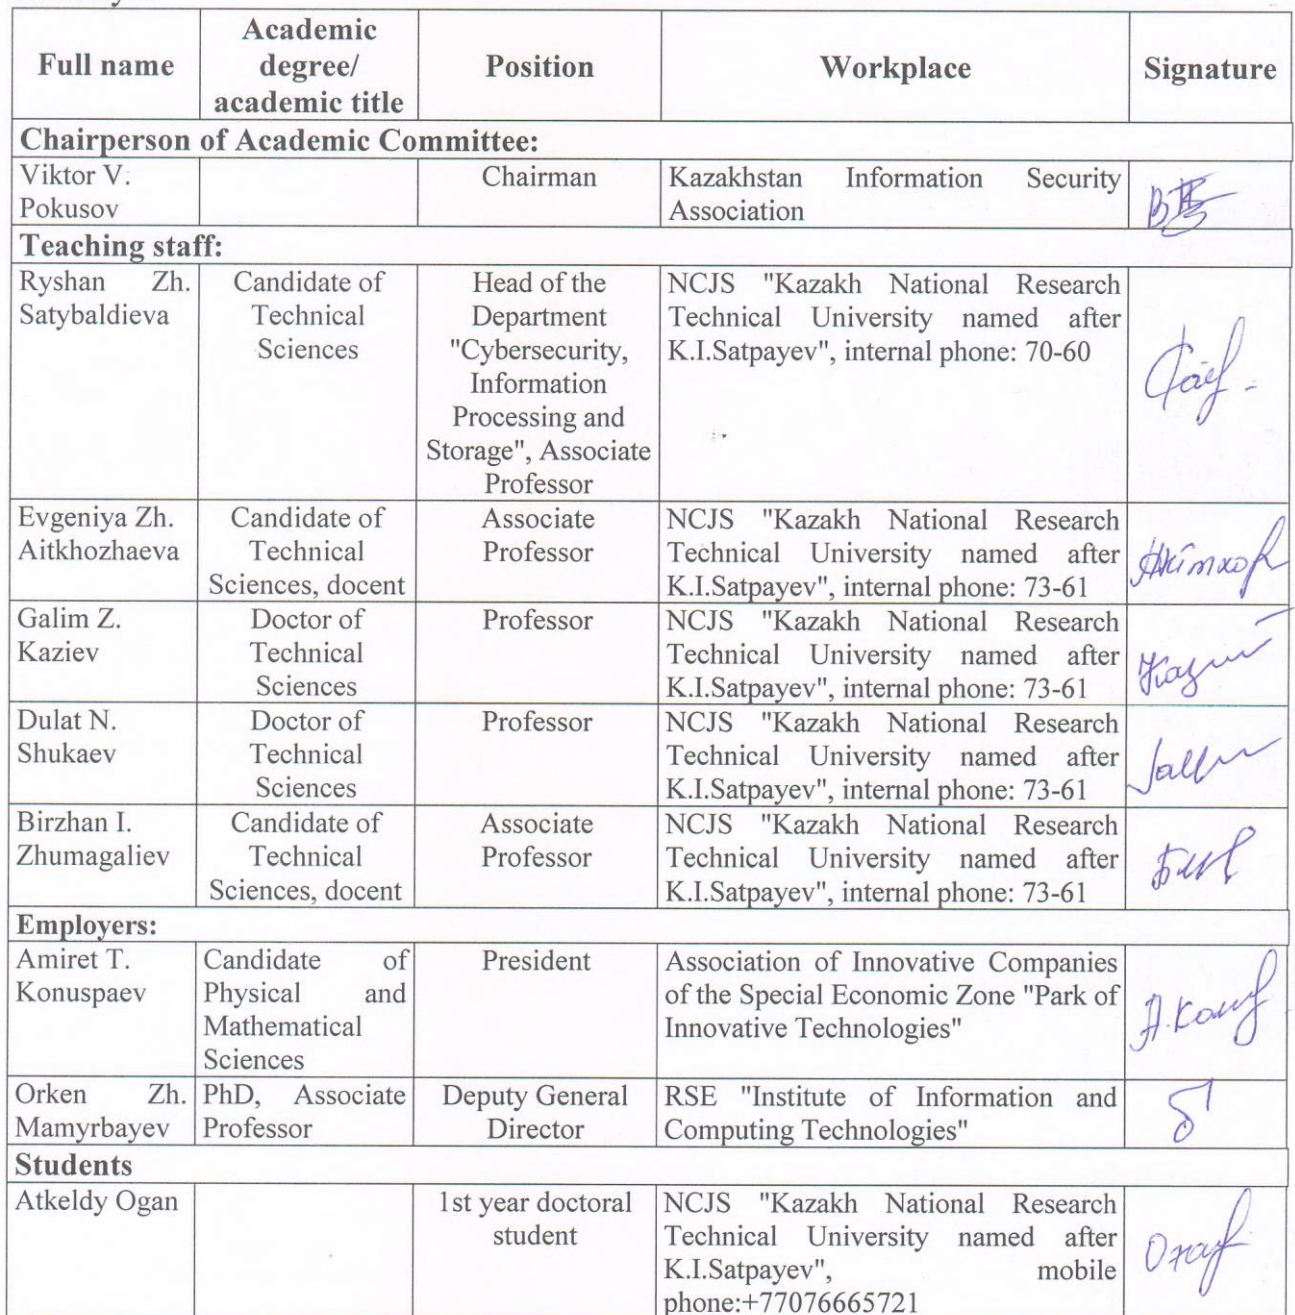 Full name
Academic
degree/
academic title
Position
Workplace
Signature
Chairperson of Academic Committee:
Viktor V.
Pokusov
Chairman
Kazakhstan Information Security
Association
Teaching staff:
Ryshan Zh.
Satybaldieva
Candidate of
Technical
Sciences
Head of the
Department
"Cybersecurity,
Information
Processing and
Storage", Associate
Professor
NCJS "Kazakh National Research
Technical University named after
K.I.Satpayev", internal phone: 70-60
Evgeniya Zh.
Aitkhozhaeva
Candidate of
Technical
Sciences, docent
Associate
Professor
NCJS "Kazakh National Research
Technical University named after
K.I.Satpayev", internal phone: 73-61
Galim Z.
Kaziev
Doctor of
Technical
Sciences
Professor
NCJS "Kazakh National Research
Technical University named after
K.I.Satpayev", internal phone: 73-61
Dulat N.
Shukaev
Doctor of
Technical
Sciences
Professor
NCJS "Kazakh National Research
Technical University named after
K.I.Satpayev", internal phone: 73-61
Birzhan I.
Zhumagaliev
Candidate of
Technical
Sciences, docent
Associate
Professor
NCJS "Kazakh National Research
Technical University named after
K.I.Satpayev", internal phone: 73-61
Employers:
Amiret T.
Konuspaev
Candidate of
Physical and
Mathematical
Sciences
President
Association of Innovative Companies
of the Special Economic Zone "Park of
Innovative Technologies"
Orken Zh.
Mamyrbayev
PhD, Associate
Professor
Deputy General
Director
RSE "Institute of Information and
Computing Technologies"
Students
Atkeldy Ogan
1st year doctoral
student
NCJS "Kazakh National Research
Technical University named after
K.I.Satpayev", mobile
phone:+77076665721